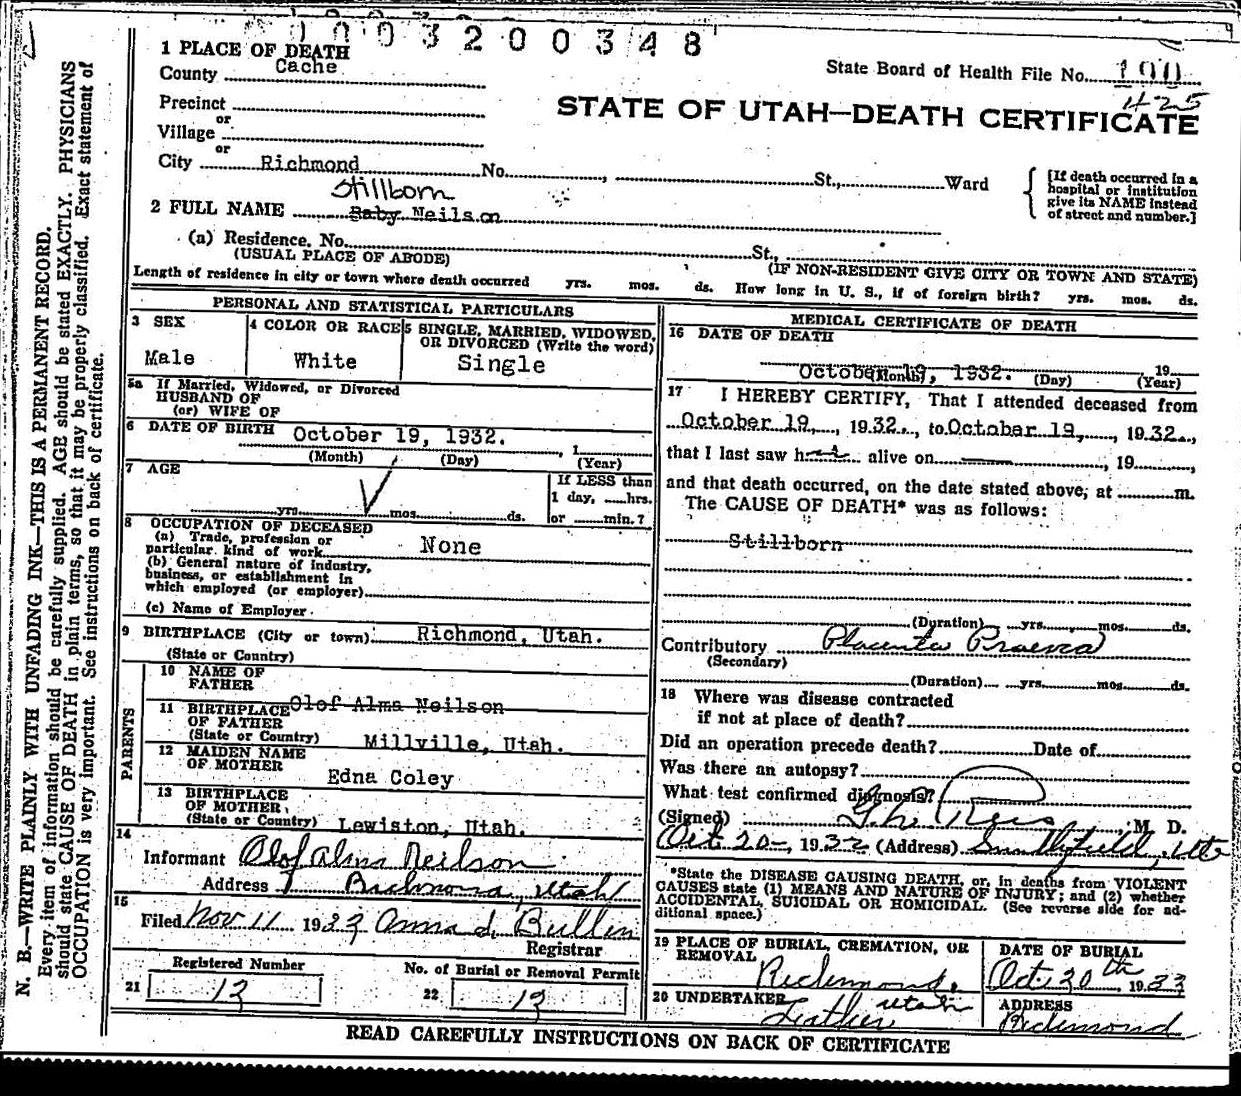 0003200348
1 PLACE OF DEATH
County Cache
State Board of Health File No. 100
425
Precinct
or
Village
or
STATE OF UTAH—DEATH CERTIFICATE
City Richmond No. , St., Ward
[If death occurred in a hospital or institution give its NAME instead of street and number.]
Stillborn
2 FULL NAME Baby Neilson
(a) Residence. No. St.,
(USUAL PLACE OF ABODE) (IF NON-RESIDENT GIVE CITY OR TOWN AND STATE)
Length of residence in city or town where death occurred yrs. mos. ds. How long in U. S., if of foreign birth? yrs. mos. ds.
PERSONAL AND STATISTICAL PARTICULARS
3 SEX
Male
4 COLOR OR RACE
White
5 SINGLE, MARRIED, WIDOWED, OR DIVORCED (Write the word)
Single
5a If Married, Widowed, or Divorced
HUSBAND OF
(or) WIFE OF
6 DATE OF BIRTH October 19, 1932. , 1
(Month) (Day) (Year)
7 AGE
yrs. mos. ds.
If LESS than
1 day, hrs.
or min.?
8 OCCUPATION OF DECEASED
(a) Trade, profession or
particular kind of work None
(b) General nature of industry,
business, or establishment in
which employed (or employer)
(c) Name of Employer
9 BIRTHPLACE (City or town) Richmond, Utah.
(State or Country)
PARENTS
10 NAME OF
FATHER
Olof Alma Neilson
11 BIRTHPLACE
OF FATHER
(State or Country) Millville, Utah.
12 MAIDEN NAME
OF MOTHER
Edna Coley
13 BIRTHPLACE
OF MOTHER
(State or Country) Lewiston, Utah.
14
Informant Olof Alma Neilson
Address Richmond, Utah
15
Filed Nov 11 1933 Anna Bullen
Registrar
Registered Number
21 13
No. of Burial or Removal Permit
22 13
MEDICAL CERTIFICATE OF DEATH
16 DATE OF DEATH
October 19, 1932. 19
(Month) (Day) (Year)
17 I HEREBY CERTIFY, That I attended deceased from
October 19, , 1932., to October 19, , 1932.,
that I last saw h alive on , 19 ,
and that death occurred, on the date stated above, at m.
The CAUSE OF DEATH* was as follows:
Stillborn
(Duration) yrs. mos. ds.
Contributory Placenta Praevia
(Secondary)
(Duration) yrs. mos. ds.
18 Where was disease contracted
if not at place of death?
Did an operation precede death? Date of
Was there an autopsy?
What test confirmed diagnosis?
(Signed) , M D.
Oct 20, 1932 (Address) Smithfield, Uta
*State the DISEASE CAUSING DEATH, or, in deaths from VIOLENT
CAUSES state (1) MEANS AND NATURE OF INJURY; and (2) whether
ACCIDENTAL, SUICIDAL OR HOMICIDAL. (See reverse side for ad-
ditional space.)
19 PLACE OF BURIAL, CREMATION, OR
REMOVAL Richmond, Utah
DATE OF BURIAL
Oct. 20th, 1933
20 UNDERTAKER
Father
ADDRESS
Richmond
READ CAREFULLY INSTRUCTIONS ON BACK OF CERTIFICATE
N. B.—WRITE PLAINLY WITH UNFADING INK—THIS IS A PERMANENT RECORD.
Every item of information should be carefully supplied. AGE should be stated EXACTLY. PHYSICIANS
should state CAUSE OF DEATH in plain terms, so that it may be properly classified. Exact statement of
OCCUPATION is very important. See instructions on back of certificate.